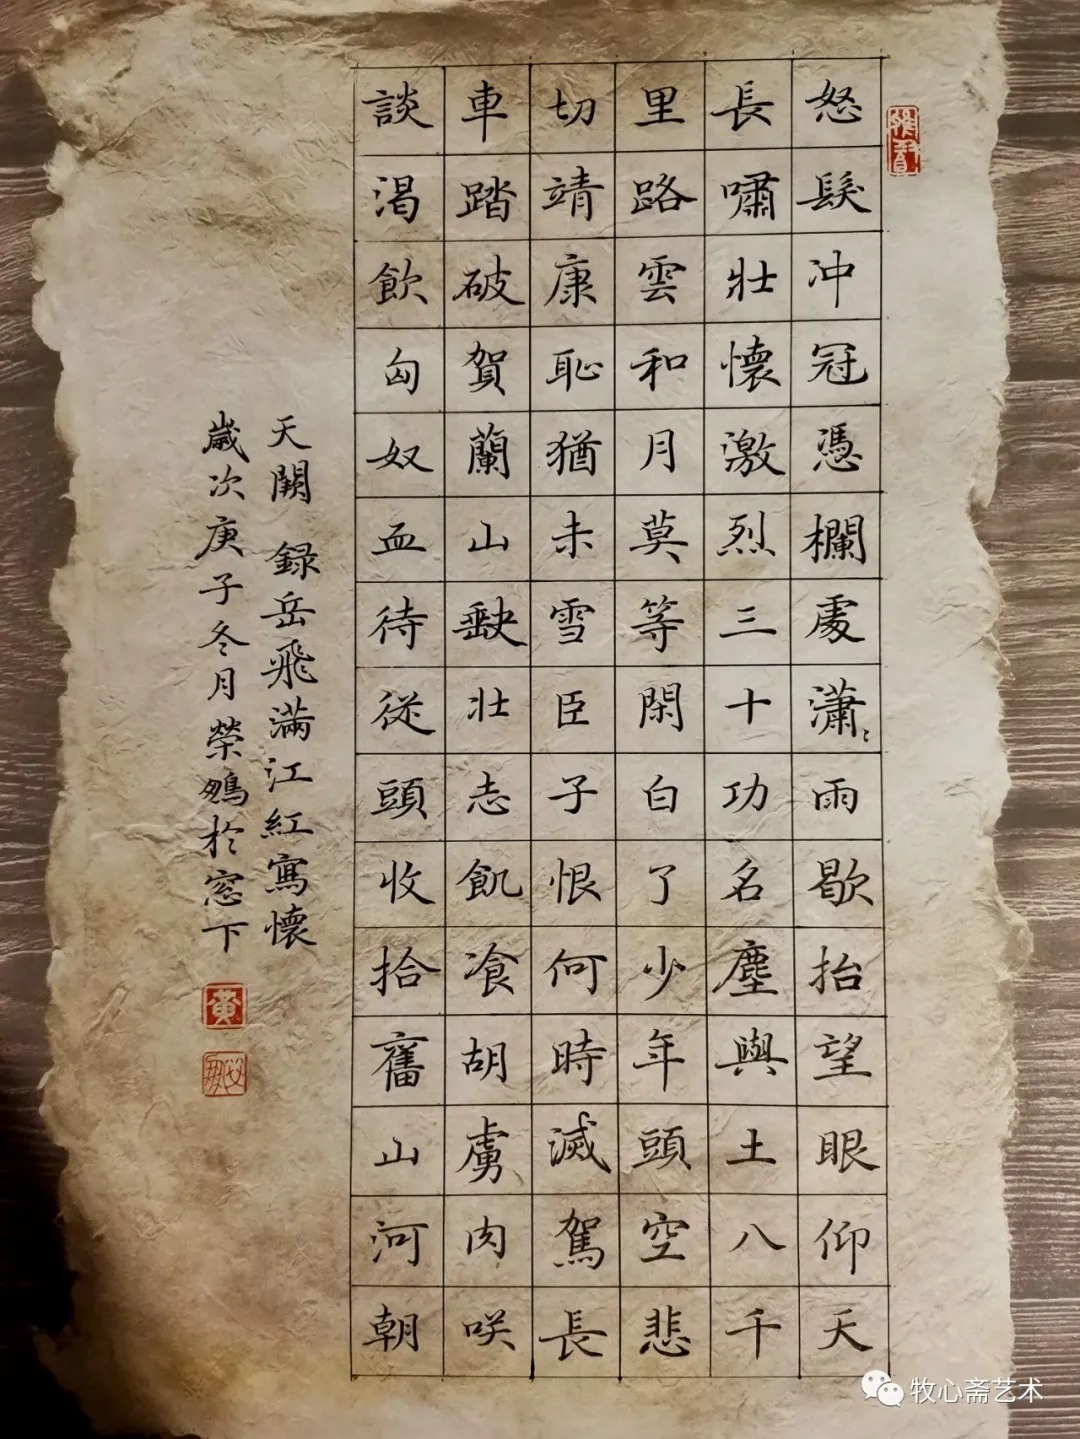 怒髮冲冠憑欄處瀟〻雨歇抬望眼仰天
長嘯壯懷激烈三十功名塵與土八千
里路雲和月莫等閑白了少年頭空悲
切靖康恥猶未雪臣子恨何時滅駕長
車踏破賀蘭山缺壯志飢飡胡虜肉咲
談渴飲匈奴血待從頭收拾舊山河朝
天闕 録岳飛滿江紅寫懷
歲次庚子冬月榮鵷於窓下
黄
牧心斋艺术